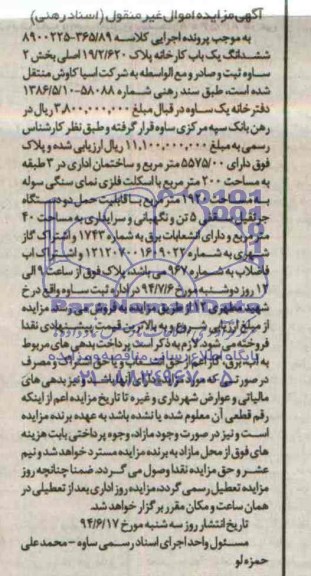 آگهی مزایده اموال غیر منقول (اسناد رهنی)
به موجب پرونده اجرایی کلاسه ۳۶۵/۸۹-۸۹۰۰۲۲۵
ششدانگ یک باب کارخانه پلاک ۱۹/۲/۶۲۰ اصلی بخش ۲
ساوه ثبت و صادر و مع الواسطه به شرکت اسپا کاوش منتقل
شده است، طبق سند رهنی شماره ۵۸۰۸۸-۱۳۸۶/۵/۱۰
دفترخانه یک ساوه در قبال مبلغ ۳,۸۰۰,۰۰۰,۰۰۰ ریال در
رهن بانک سپه مرکزی ساوه قرار گرفته و طبق نظر کارشناس
رسمی به مبلغ ۱۱,۱۰۰,۰۰۰,۰۰۰ ریال ارزیابی شده و پلاک
فوق دارای ۵۵۷۵/۰۰ متر مربع و ساختمان اداری در ۳ طبقه
به مساحت ۲۰۰ متر مربع با اسکلت فلزی نمای سنگی سوله
به مساحت متر مربع با قابلیت حمل دو دستگاه
جرثقیل سقفی ۵ تن و نگهبانی و سرایداری به مساحت ۴۰
متر مربع و دارای انشعابات برق به شماره ۱۷۴۳ و اشتراک گاز
شهری به شماره ۱۲۱۲۰۷۰۰۱۶۰۹۰۲۲ و اشتراک آب
فاضلاب به شماره ۹۶۷ می باشد، پلاک فوق از ساعت ۹ الی
۱۲ روز دوشنبه مورخ ۹۴/۷/۶ در اداره ثبت ساوه واقع در خ
شهید مطهری از طریق مزایده به فروش می رسد. مزایده
از مبلغ ارزیابی شروع و به بالاترین قیمت پیشنهادی نقدا
فروخته می شود. لازم به ذکر است پرداخت بدهی های مربوط
به آب، برق، گاز اعم از حق انشعاب و یا حق اشتراک و مصرف
در صورتی که مورد مزایده دارای آنها باشد و نیز بدهی های
مالیاتی و عوارض شهرداری و غیره تا تاریخ مزایده اعم از اینکه
رقم قطعی آن معلوم شده یا نشده باشد به عهده برنده مزایده
است و نیز در صورت وجود مازاد، وجوه پرداختی بابت هزینه
های فوق از محل مازاد به برنده مزایده مسترد خواهد شد و نیم
عشر و حق مزایده نقدا وصول می گردد. ضمنا چنانچه روز
مزایده تعطیل رسمی گردد، مزایده روز اداری بعد از تعطیلی در
همان ساعت و مکان مقرر برگزار خواهد شد.
تاریخ انتشار روز سه شنبه مورخ ۹۴/۶/۱۷
مسئول واحد اجرای اسناد رسمی ساوه - محمدعلی
حمزه لو